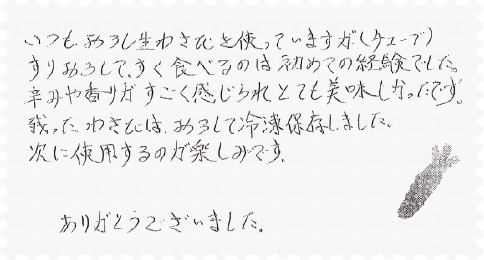 いつも おろし生わさびを使っていますが(チューブ)
すりおろして、すぐ食べるのは初めての経験でした。
辛みや香りがすごく感じられとても美味しかったです。
残ったわさびは、おろして冷凍保存しました。
次に使用するのが楽しみです。
ありがとうございました。